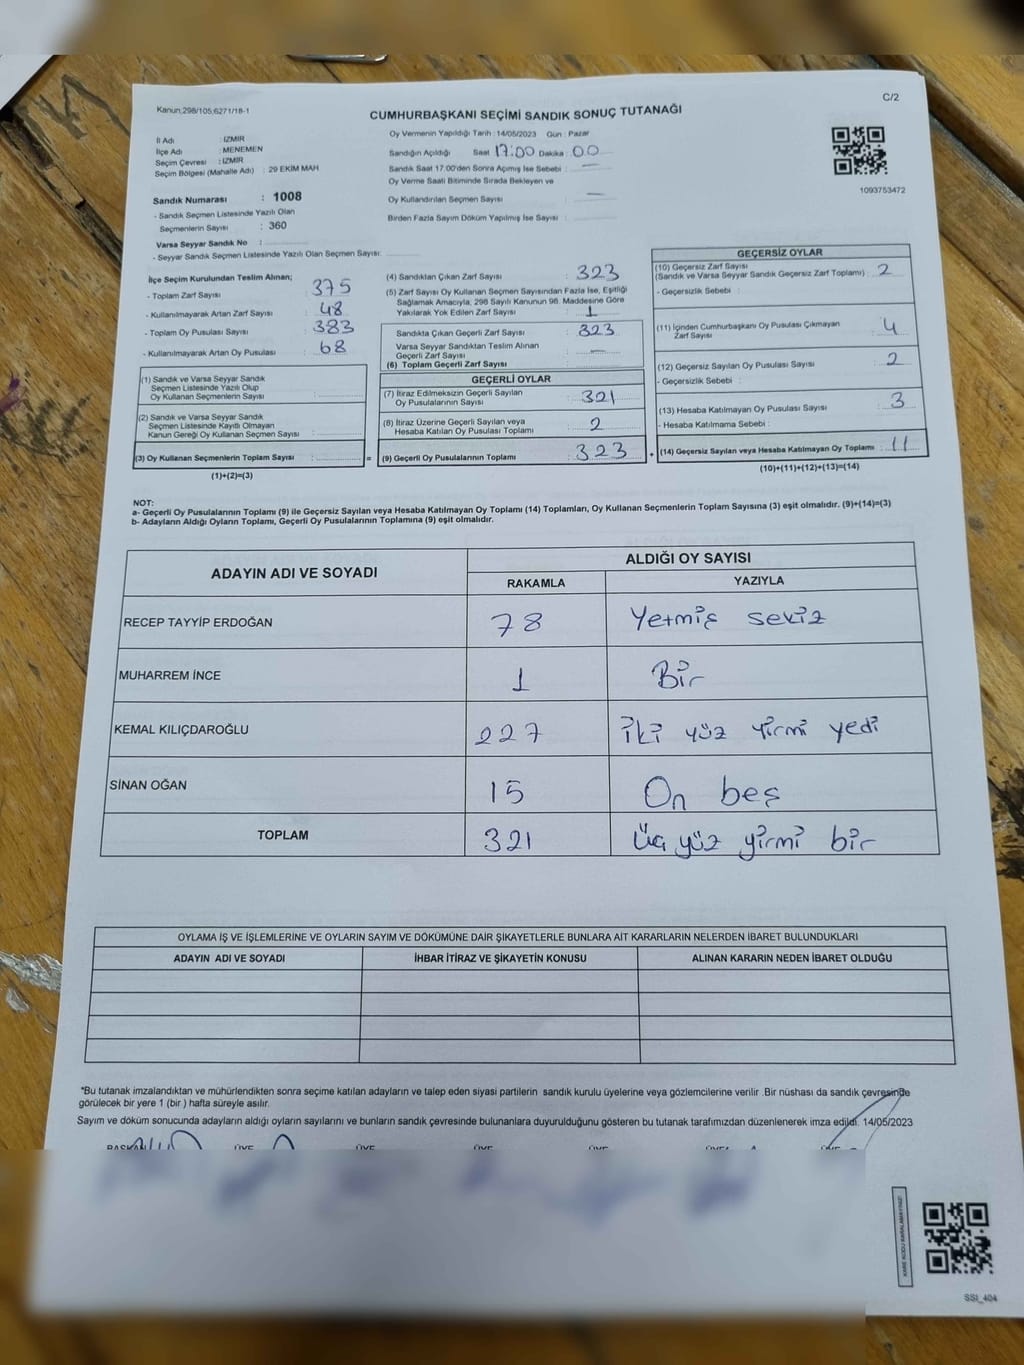 Kanun,298/105,6271/18-1
C/2
CUMHURBAŞKANI SEÇİMİ SANDIK SONUÇ TUTANAĞI
İl Adı : İZMİR
İlçe Adı : MENEMEN
Seçim Çevresi : İZMİR
Seçim Bölgesi (Mahalle Adı) : 29 EKİM MAH
Sandık Numarası : 1008
- Sandık Seçmen Listesinde Yazılı Olan
Seçmenlerin Sayısı : 360
Varsa Seyyar Sandık No :
- Seyyar Sandık Seçmen Listesinde Yazılı Olan Seçmen Sayısı:
Oy Vermenin Yapıldığı Tarih : 14/05/2023 Gün : Pazar
Sandığın Açıldığı Saat 17:00 Dakika : 00
Sandık Saat 17.00'den Sonra Açımış İse Sebebi : —
Oy Verme Saati Bitiminde Sırada Bekleyen ve
Oy Kullandırılan Seçmen Sayısı : —
Birden Fazla Sayım Döküm Yapılmış İse Sayısı :
1093753472
İlçe Seçim Kurulundan Teslim Alınan;
- Toplam Zarf Sayısı : 375
- Kullanılmayarak Artan Zarf Sayısı : 48
- Toplam Oy Pusulası Sayısı : 383
- Kullanılmayarak Artan Oy Pusulası : 68
(1) Sandık ve Varsa Seyyar Sandık
Seçmen Listesinde Yazılı Olup
Oy Kullanan Seçmenlerin Sayısı :
(2) Sandık ve Varsa Seyyar Sandık
Seçmen Listesinde Kayıtlı Olmayan
Kanun Gereği Oy Kullanan Seçmen Sayısı :
(3) Oy Kullanan Seçmenlerin Toplam Sayısı :
(1)+(2)=(3)
=
(4) Sandıktan Çıkan Zarf Sayısı : 323
(5) Zarf Sayısı Oy Kullanan Seçmen Sayısından Fazla İse, Eşitliği
Sağlamak Amacıyla, 298 Sayılı Kanunun 98. Maddesine Göre
Yakılarak Yok Edilen Zarf Sayısı : 1
Sandıkta Çıkan Geçerli Zarf Sayısı : 323
Varsa Seyyar Sandıktan Teslim Alınan
Geçerli Zarf Sayısı : —
(6) Toplam Geçerli Zarf Sayısı :
GEÇERLİ OYLAR
(7) İtiraz Edilmeksizin Geçerli Sayılan
Oy Pusulalarının Sayısı : 321
(8) İtiraz Üzerine Geçerli Sayılan veya
Hesaba Katılan Oy Pusulası Toplamı : 2
(9) Geçerli Oy Pusulalarının Toplamı : 323
+
GEÇERSİZ OYLAR
(10) Geçersiz Zarf Sayısı
(Sandık ve Varsa Seyyar Sandık Geçersiz Zarf Toplamı) : 2
- Geçersizlik Sebebi :
(11) İçinden Cumhurbaşkanı Oy Pusulası Çıkmayan
Zarf Sayısı : 4
(12) Geçersiz Sayılan Oy Pusulası Sayısı : 2
- Geçersizlik Sebebi :
(13) Hesaba Katılmayan Oy Pusulası Sayısı : 3
- Hesaba Katılmama Sebebi :
(14) Geçersiz Sayılan veya Hesaba Katılmayan Oy Toplamı : 11
(10)+(11)+(12)+(13)=(14)
NOT:
a- Geçerli Oy Pusulalarının Toplamı (9) ile Geçersiz Sayılan veya Hesaba Katılmayan Oy Toplamı (14) Toplamları, Oy Kullanan Seçmenlerin Toplam Sayısına (3) eşit olmalıdır. (9)+(14)=(3)
b- Adayların Aldığı Oyların Toplamı, Geçerli Oy Pusulalarının Toplamına (9) eşit olmalıdır.
ADAYIN ADI VE SOYADI
ALDIĞI OY SAYISI
RAKAMLA YAZIYLA
RECEP TAYYİP ERDOĞAN 78 Yetmiş sekiz
MUHARREM İNCE 1 Bir
KEMAL KILIÇDAROĞLU 227 iki yüz yirmi yedi
SİNAN OĞAN 15 On beş
TOPLAM 321 Üç yüz yirmi bir
OYLAMA İŞ VE İŞLEMLERİNE VE OYLARIN SAYIM VE DÖKÜMÜNE DAİR ŞİKAYETLERLE BUNLARA AİT KARARLARIN NELERDEN İBARET BULUNDUKLARI
ADAYIN ADI VE SOYADI İHBAR İTİRAZ VE ŞİKAYETİN KONUSU ALINAN KARARIN NEDEN İBARET OLDUĞU
*Bu tutanak imzalandıktan ve mühürlendikten sonra seçime katılan adayların ve talep eden siyasi partilerin sandık kurulu üyelerine veya gözlemcilerine verilir .Bir nüshası da sandık çevresinde
görülecek bir yere 1 (bir ) hafta süreyle asılır.
Sayım ve döküm sonucunda adayların aldığı oyların sayılarını ve bunların sandık çevresinde bulunanlara duyurulduğunu gösteren bu tutanak tarafımızdan düzenlenerek imza edildi. 14/05/2023
BAŞKAN ÜYE ÜYE ÜYE ÜYE ÜYE ÜYE
SSI_404